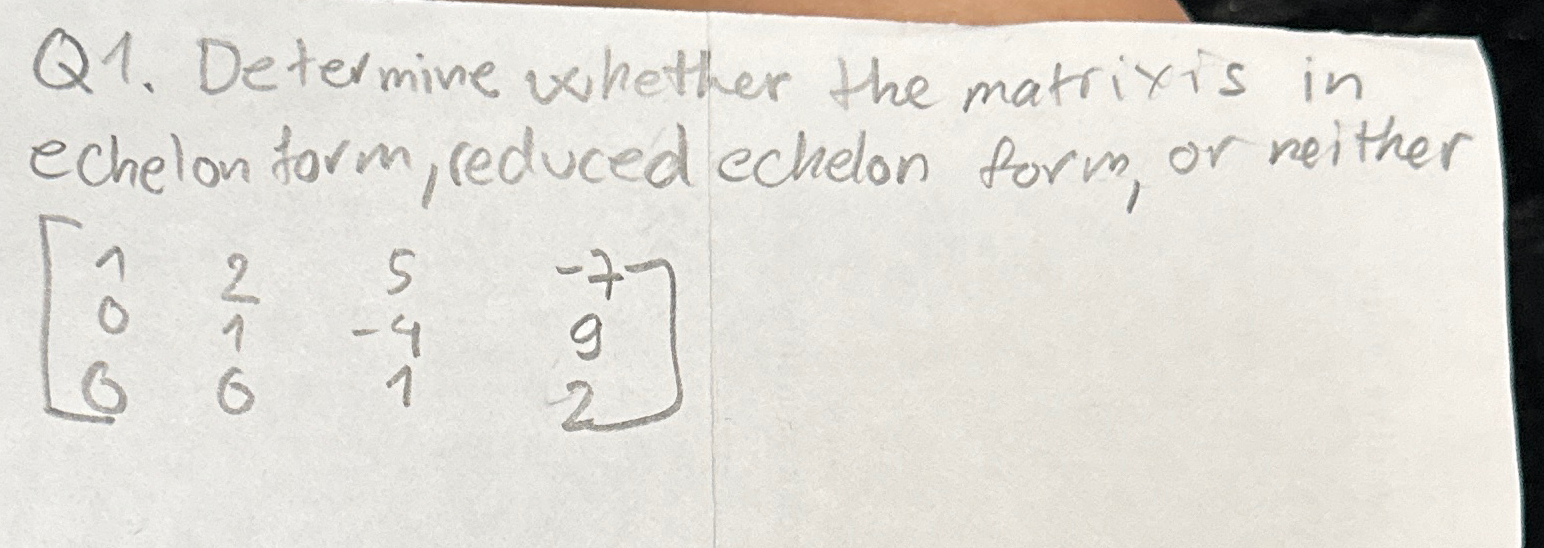 Q1. Determine whether the matrix is in
echelon form, reduced echelon form, or neither
1 2 5 -7
0 1 -4 9
0 0 1 2